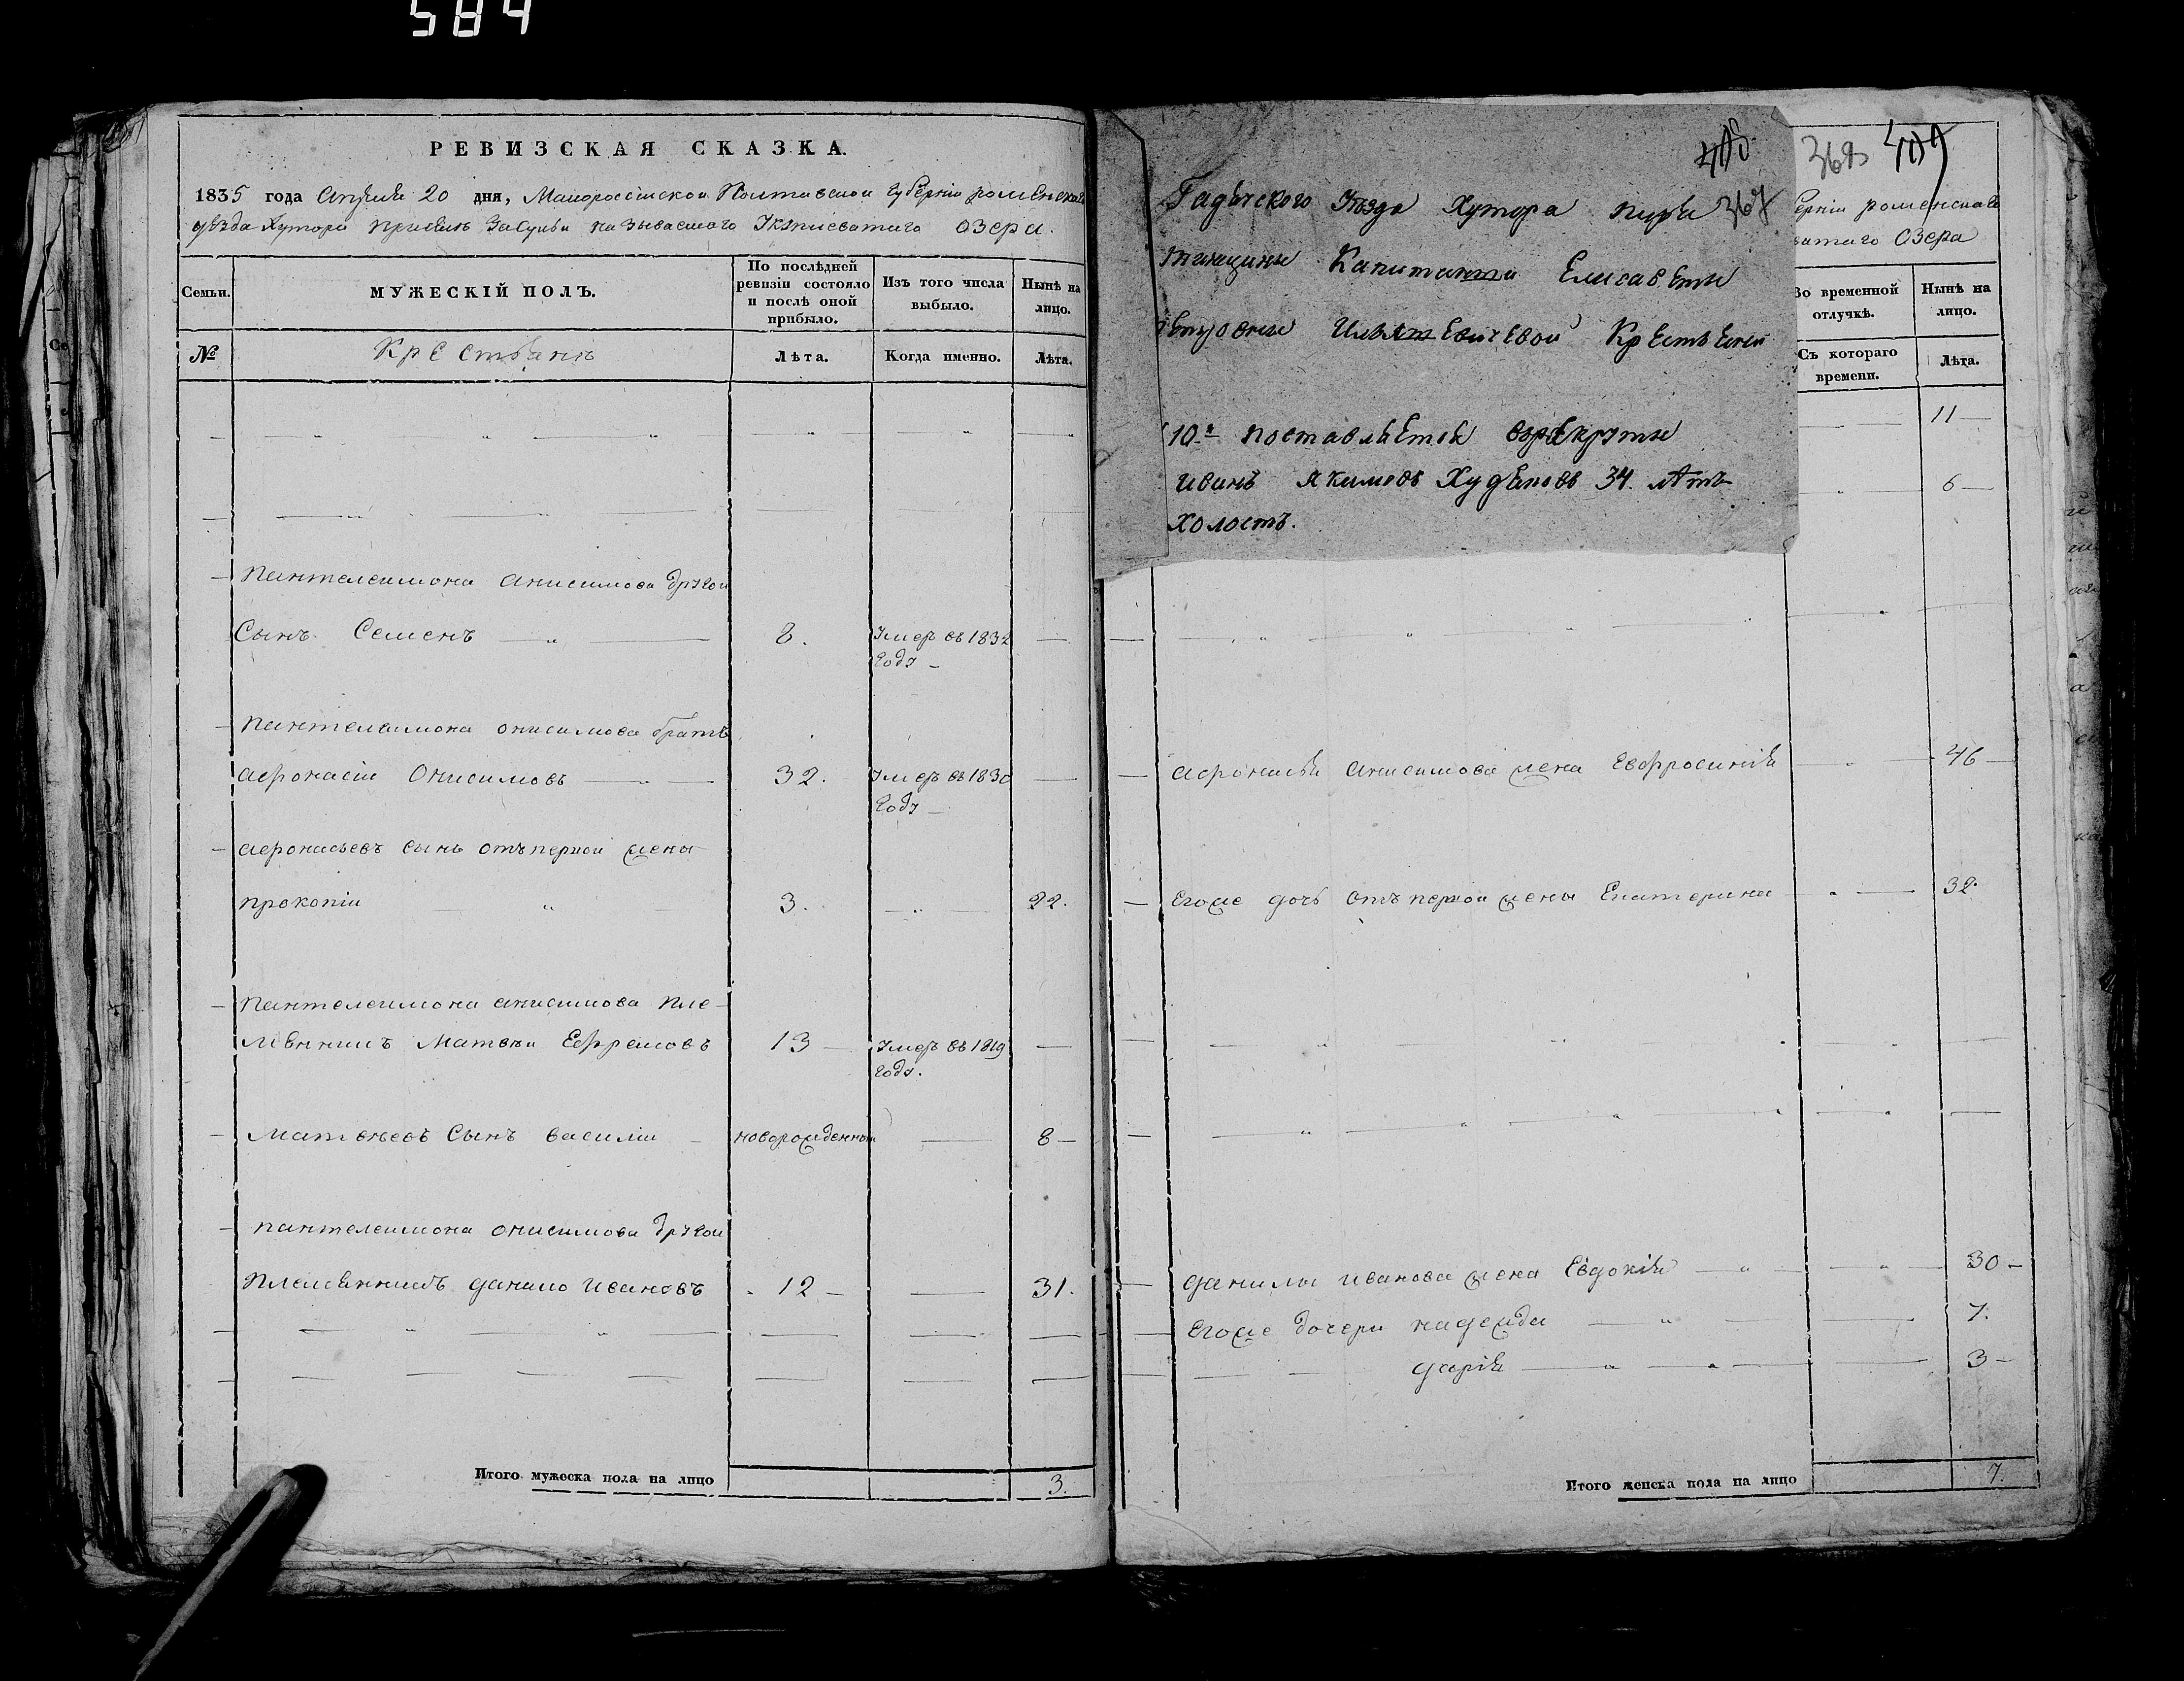 584
РЕВИЗСКАЯ СКАЗКА.
1835 года Апреля 20 дня, Малороссійской Полтавской Губерніи роменскаго
уѣзда Хутора при селѣ Засульи называемаго озера.
Семьи.
МУЖЕСКІЙ ПОЛЪ.
По послѣдней ревизіи состояло и послѣ оной прибыло.
Изъ того числа выбыло.
Нынѣ на лицо.
№
Крестьянъ
Лѣта.
Когда именно.
Лѣта.
Пантелеимона Анисимова другой
Сынъ Семенъ 8. Умеръ въ 1832
году
Пантелеимона онисимова братъ
Афонасіи Онисимовъ 32. Умеръ въ 1830
году
Афонасьевъ сынъ отъ первой жены
прокопіи 3. 22.
Пантелеимона анисимова пле-
мѣнникъ Матвѣи Ефремовъ 13 Умеръ въ 1819
году.
Матвѣевъ Сынъ василіи новорожденный 8
пантелеимона онисимова другой
племѣнникъ данило Ивановъ 12 31.
Итого мужеска пола на лицо 3.
Гадячского Уѣзда Хутора 367
Капитанши Елисаветы
Крестьянъ
10.я поставляется врекруты
иванъ якимовъ Худѣковъ 34. лѣтъ
холостъ.
369 409
ерніи роменскаго
ватаго Озера
Во временной отлучкѣ.
Нынѣ на лицо.
Съ котораго времени.
Лѣта.
11
6
Афонасія Анисимова жена Евфросинія 46
Егоже дочь отъ первой жены Екатерина 32.
данилы иванова жена Евдокія 30
Егоже дочери надежда 7.
дарія 3
Итого женска пола на лицо 7.